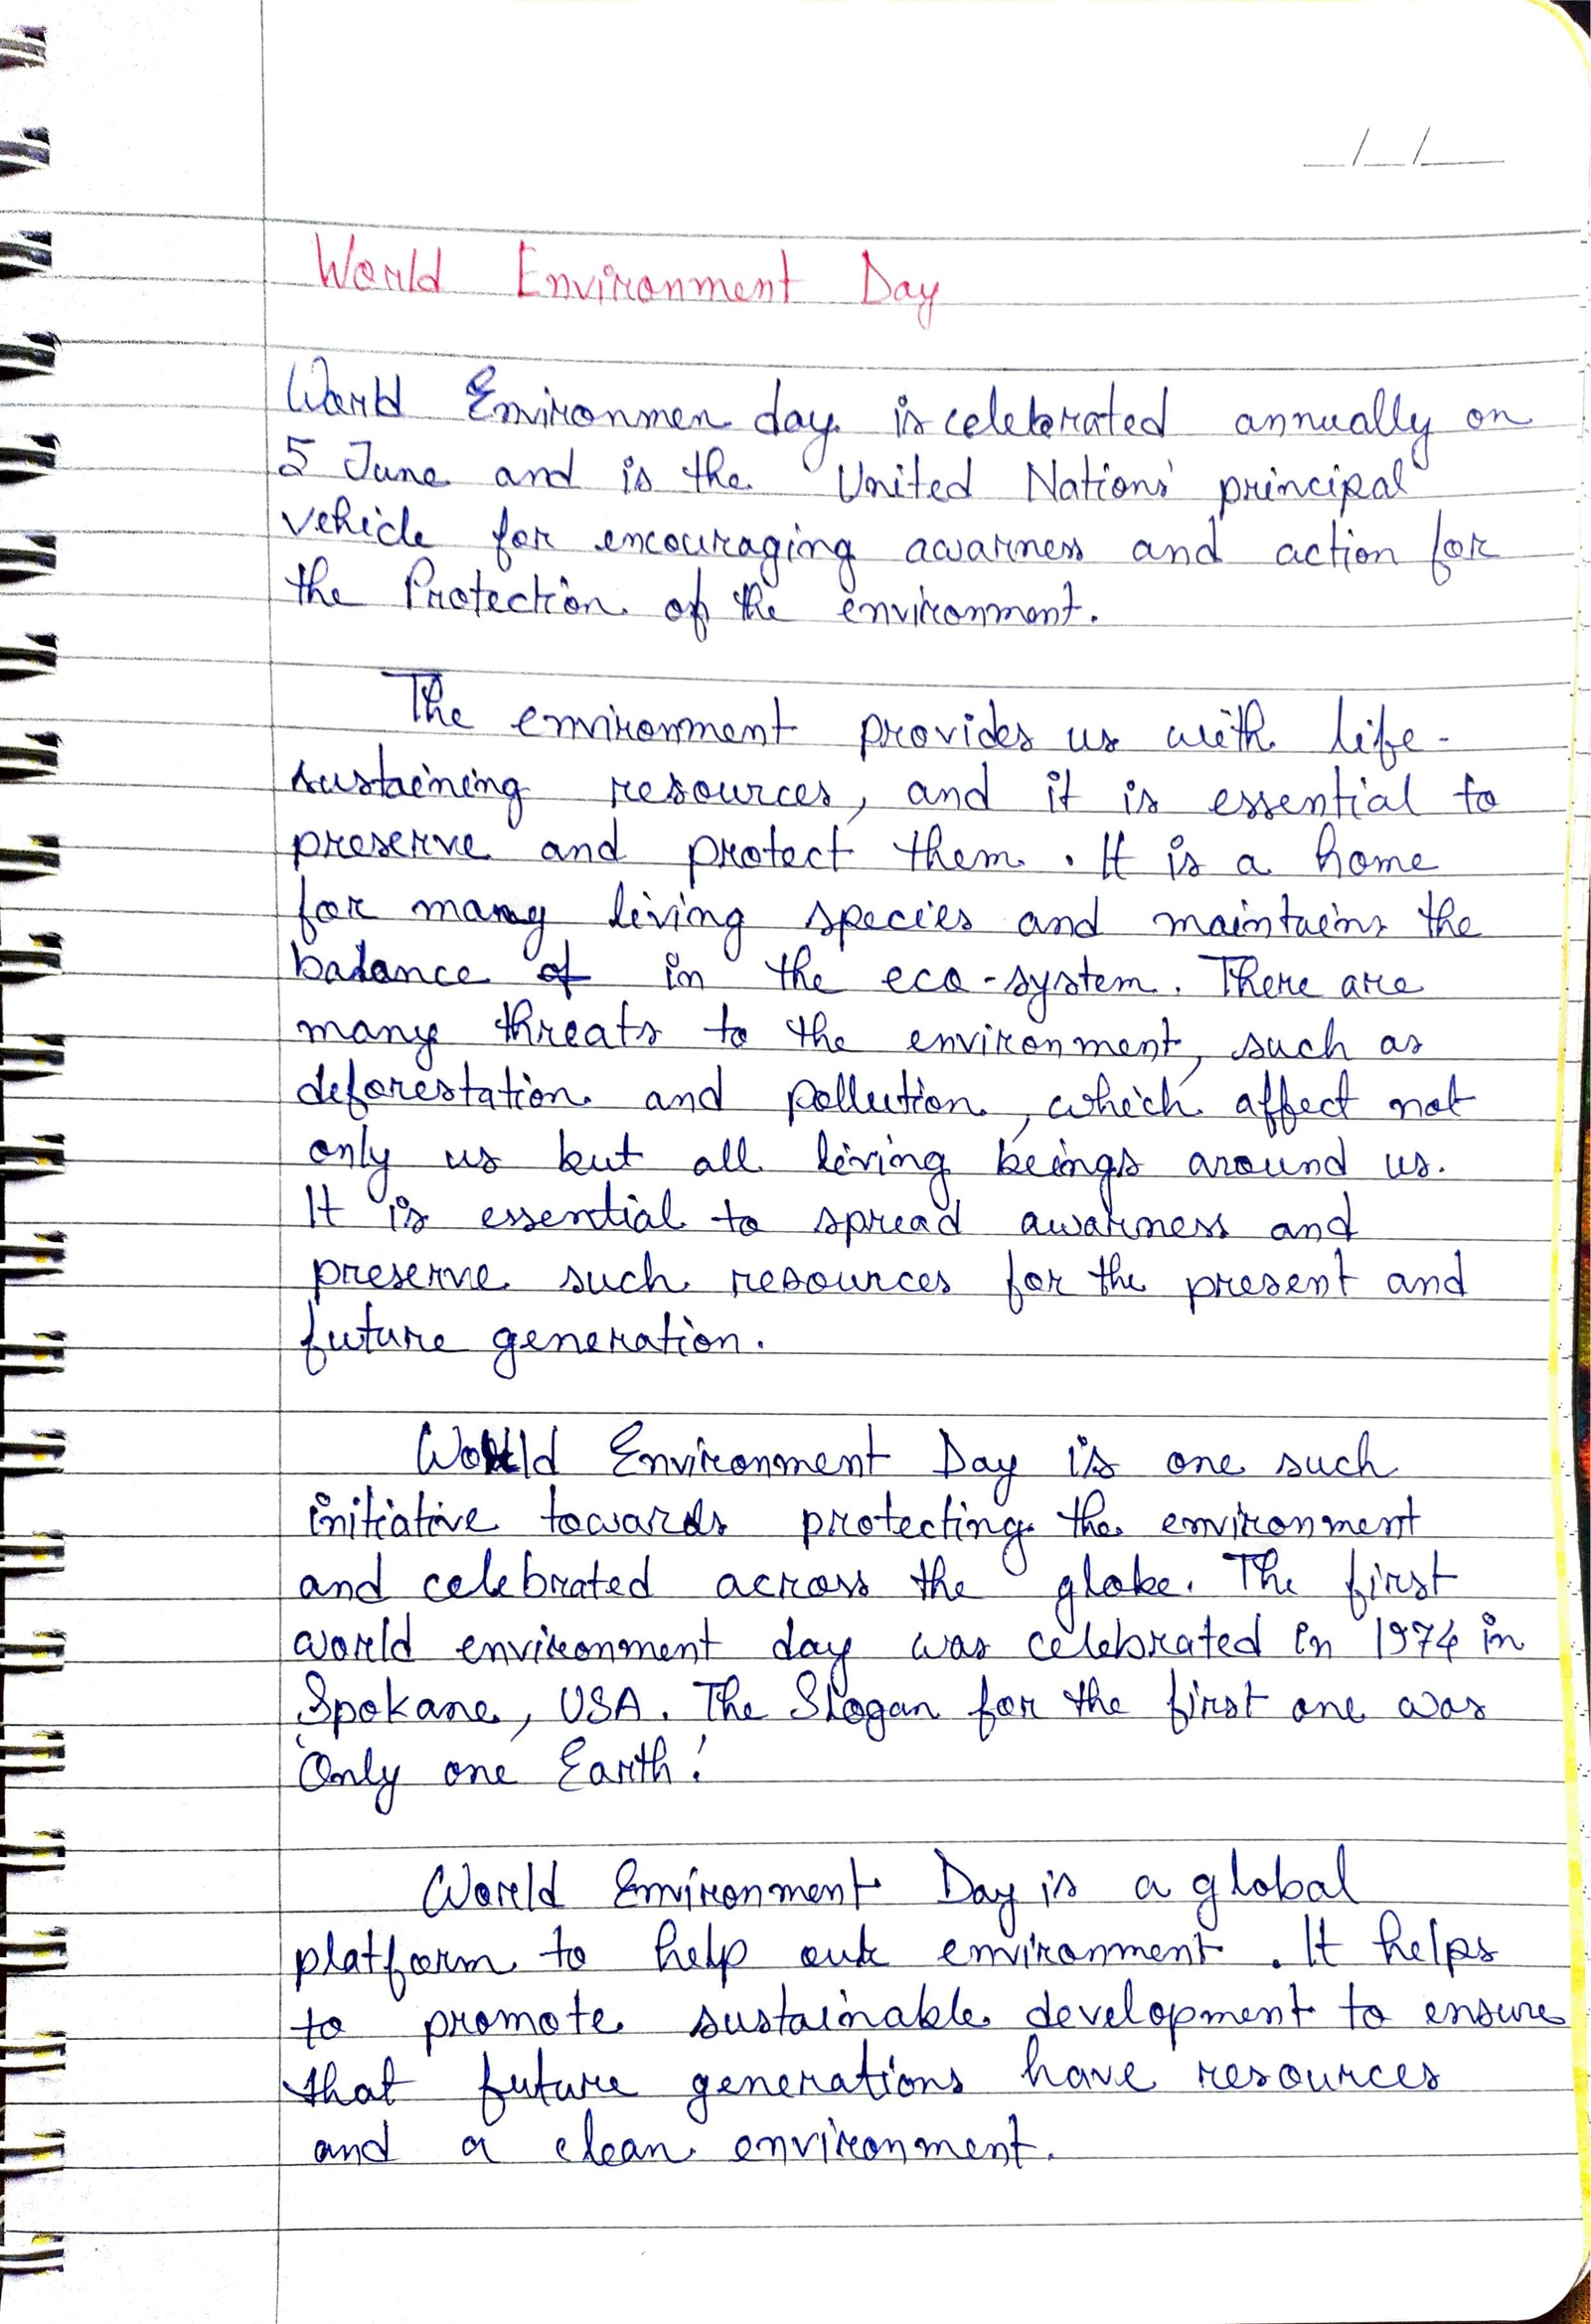 World Environment Day
World Environmen day is celebrated annually on
5 June and is the United Nations' principal
vehicle for encouraging awarness and action for
the Protection of the environment.
The environment provides us with life-
sustaining resources, and it is essential to
preserve and protect them. It is a home
for many living species and maintains the
balance of in the eco-system. There are
many threats to the environment, such as
deforestation and pollution, which affect not
only us but all living beings around us.
It is essential to spread awarness and
preserve such resources for the present and
future generation.
World Environment Day is one such
initiative towards protecting the environment
and celebrated across the globe. The first
world environment day was celebrated in 1974 in
Spokane, USA. The Slogan for the first one was
'Only one Earth.'
World Environment Day is a global
platform to help our environment. It helps
to promote sustainable development to ensure
that future generations have resources
and a clean environment.